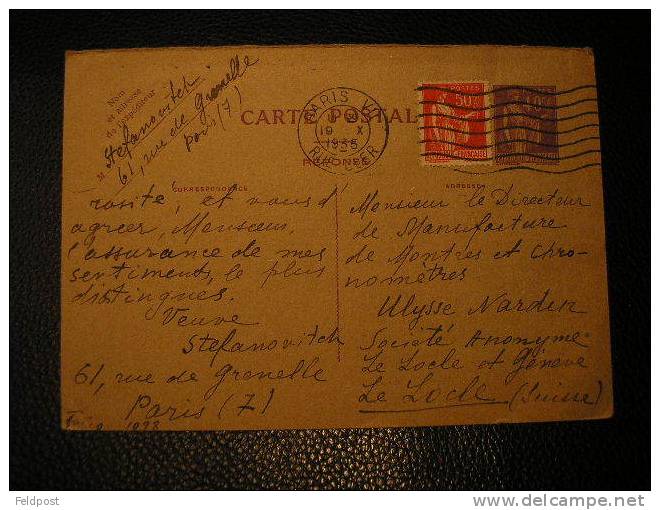 Nom
et adresse
de l'expéditeur
M Stefanovitch
61, rue de Grenelle
Paris (7)
CARTE POSTALE
RÉPONSE
PARIS V
19 X
1935
POSTES
50c
CORRESPONDANCE
ADRESSE
rosité, et vous d'
agréer, Monsieur,
l'assurance de mes
sentiments, le plus
distingues.
Veuve
Stefanovitch
61, rue de Grenelle
Paris (7)
Monsieur le Directeur
de Manufacture
de Montres et Chro-
nomètres
Ulysse Nardin
Société Anonyme
Le Locle et Genève
Le Locle (Suisse)
Feldpost
delcampe.net